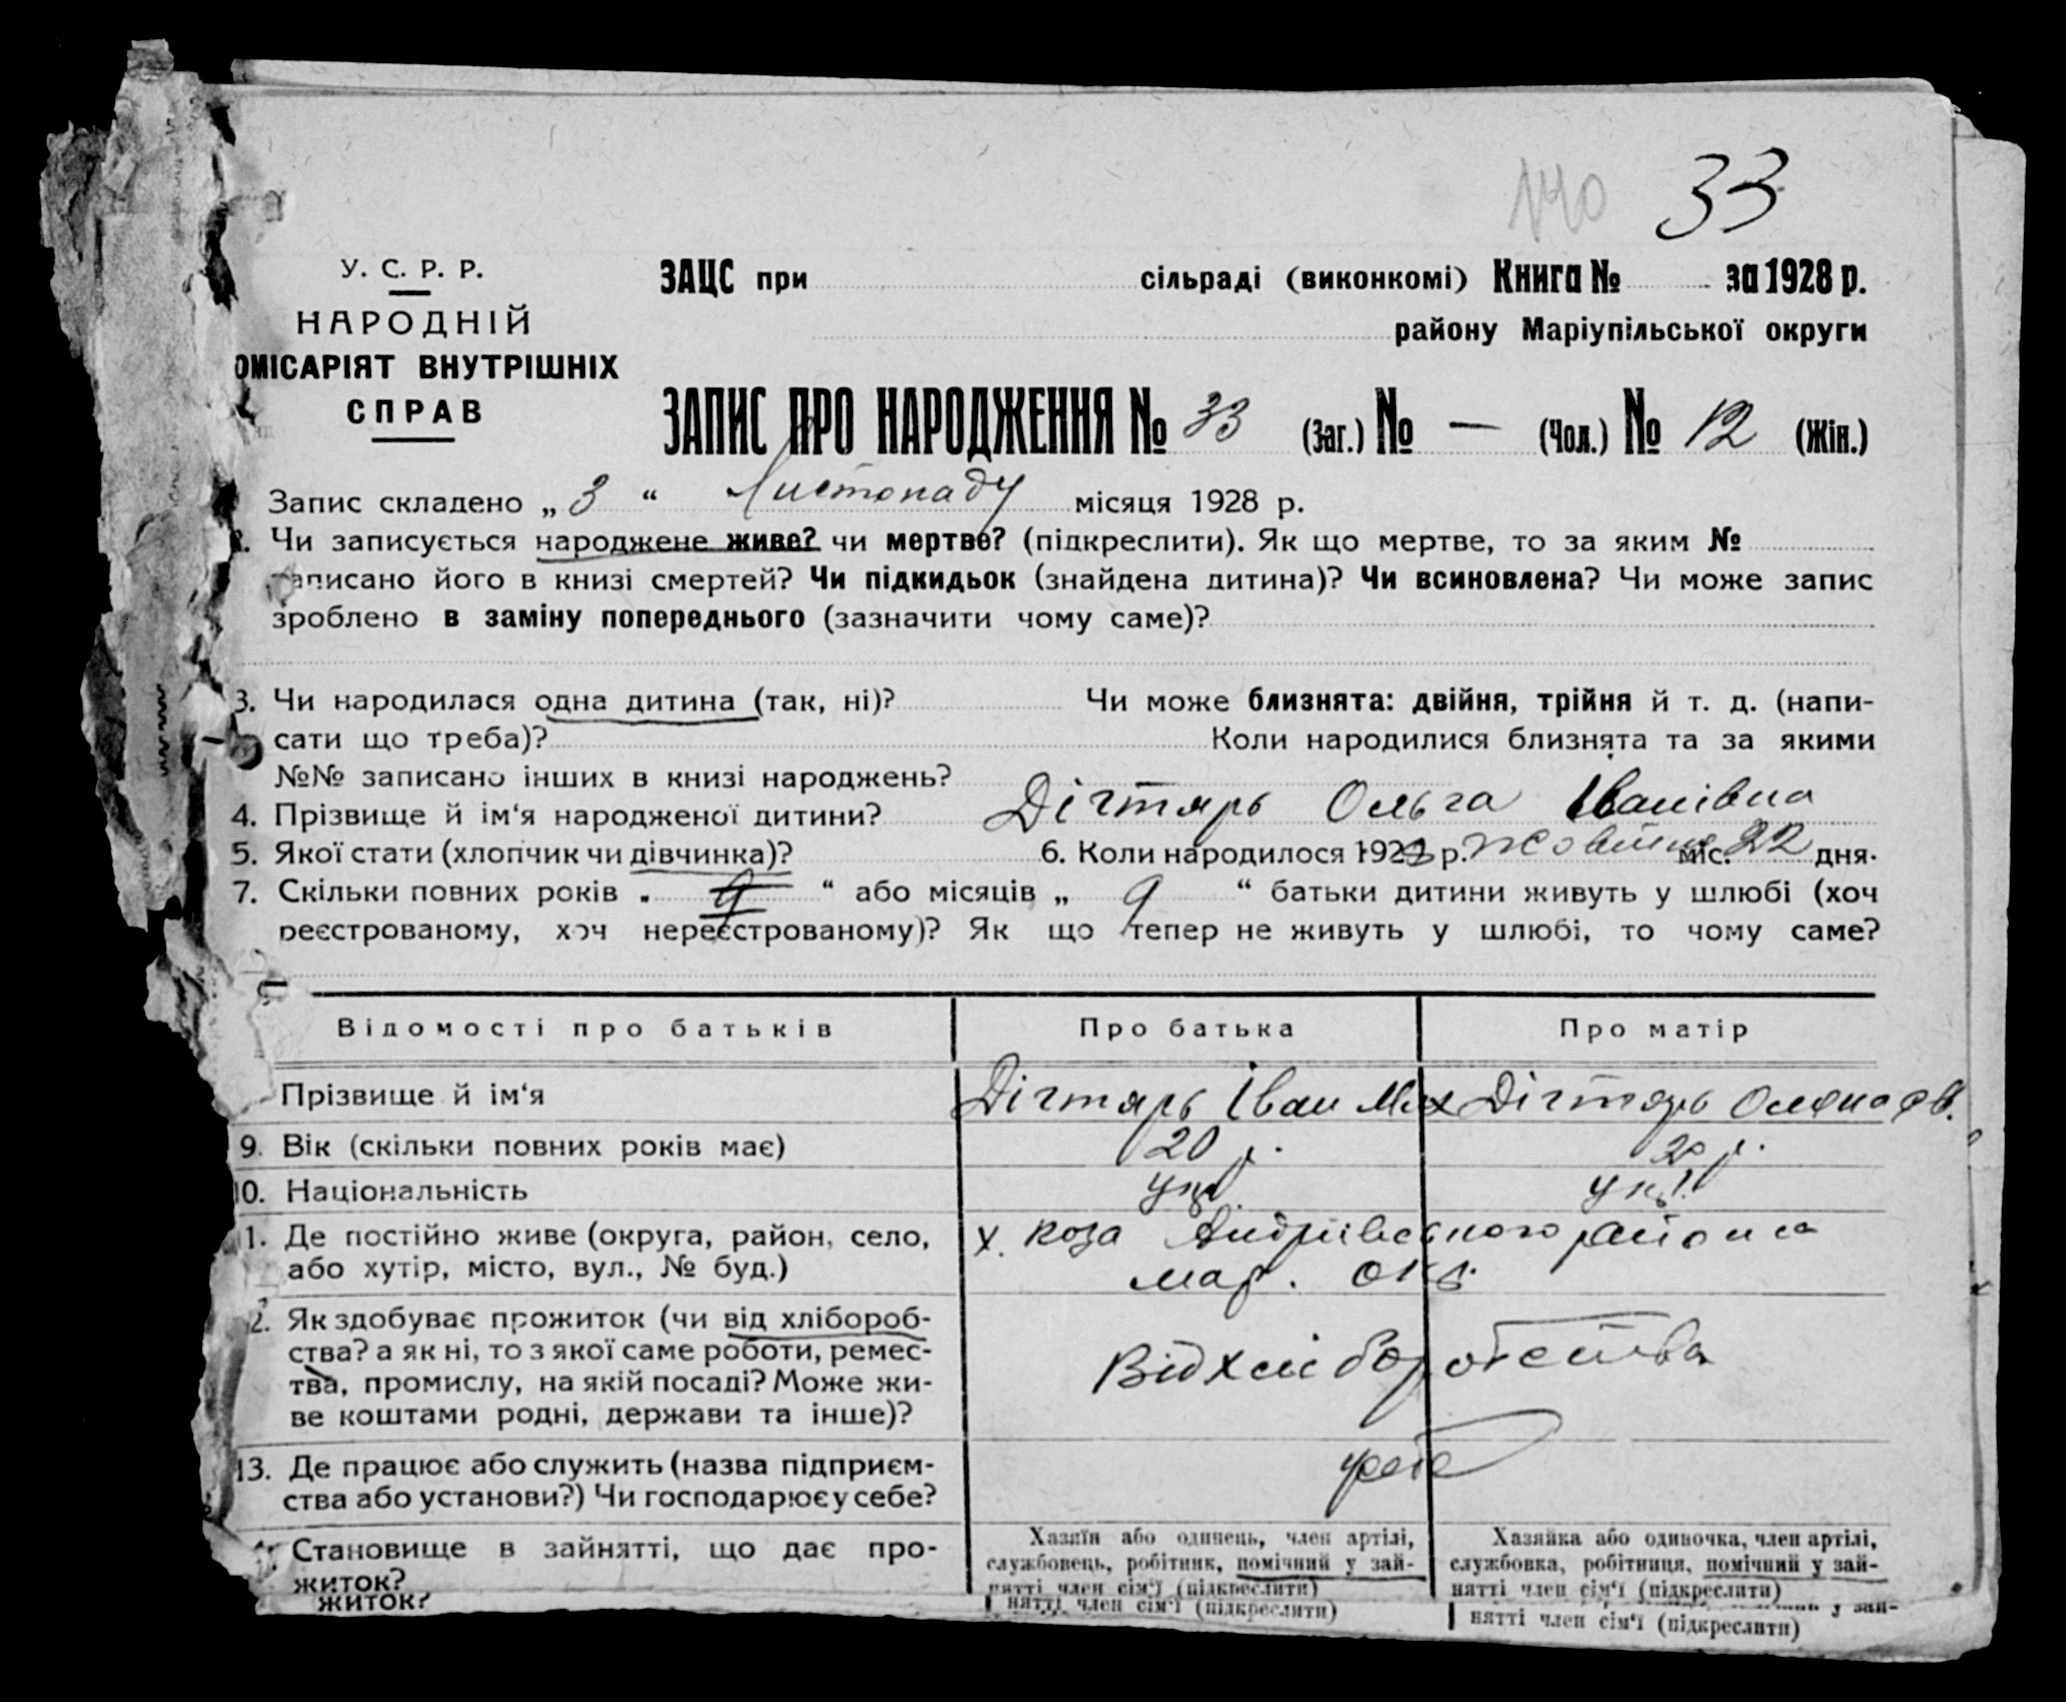 140 33
У. С. Р. Р.
НАРОДНІЙ
ОМІСАРІЯТ ВНУТРІШНІХ
СПРАВ
ЗАЦС при сільраді (виконкомі) Книга № за 1928 р.
району Маріупільської округи
ЗАПИС ПРО НАРОДЖЕННЯ № 33 (Заг.) № — (Чол.) № 12 (Жін.)
Запис складено „ 3 “ Листопаду місяця 1928 р.
Чи записується народжене живе? чи мертве? (підкреслити). Як що мертве, то за яким №
записано його в книзі смертей? Чи підкидьок (знайдена дитина)? Чи всиновлена? Чи може запис
зроблено в заміну попереднього (зазначити чому саме)?
3. Чи народилася одна дитина (так, ні)? Чи може близнята: двійня, трійня й т. д. (напи-
сати що треба)? Коли народилися близнята та за якими
№№ записано інших в книзі народжень?
4. Прізвище й ім‘я народженої дитини? Дігтярь Ольга Іванівна
5. Якої стати (хлопчик чи дівчинка)? 6. Коли народилося 1928 р. Жовтня міс. 22 дня.
7. Скільки повних років „ 9 “ або місяців „ 9 “ батьки дитини живуть у шлюбі (хоч
реєстрованому, хоч нереєстрованому)? Як що тепер не живуть у шлюбі, то чому саме?
Відомості про батьків Про батька Про матір
Прізвище й ім‘я Дігтярь Іван Мих Дігтярь Олена
9. Вік (скільки повних років має) 20 р. 20 р.
10. Національність укр. укр.
11. Де постійно живе (округа, район, село, х. коза Андріївського района
або хутір, місто, вул., № буд.) мар. окр.
12. Як здобуває прожиток (чи від хлібороб-
ства? а як ні, то з якої саме роботи, ремес- Від хліборобства
тва, промислу, на якій посаді? Може жи-
ве коштами родні, держави та інше)?
13. Де працює або служить (назва підприєм- у себе
ства або установи?) Чи господарює у себе?
Становище в зайнятті, що дає про- Хазяїн або одинець, член артілі, Хазяйка або одиночка, член артілі,
житок? службовець, робітник, помічний у зай- службовка, робітниця, помічний у зай-
нятті член сім‘ї (підкреслити) нятті член сім‘ї (підкреслити)
житок? нятті член сім‘ї (підкреслити) у зай-
нятті член сім‘ї (підкреслити)